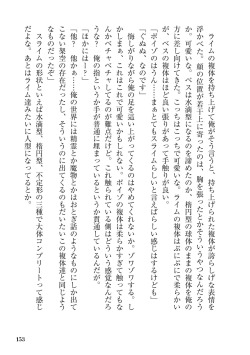 ライムの複体を持ち上げて俺がそう言うと、持ち上げられた複体が誇らしげな表情を
浮かべた。顔の位置が若干上に寄ったのは、胸を張ったとかそういうやつなんだろう
か。可愛いな。ベスは水滴型になるのを諦めたのか、楕円型の球体のままの複体を俺の
方に差し向けてきた。こっちはこっちで可愛いな。ライムの複体はぷにぷになんだ
が、ベスの複体はほど良い張りがあって手触りが良い。
「ポイゾのはうん……まぁとてもスライムらしいと言えばらしい感じはするけども」
「ぐぬぬ、なのです」
悔しがりながら俺の足を這い上がってくるのはやめてくれないか。ゾワゾワする。し
かしまぁ、これはこれで可愛いかもしれない。ポイゾの複体は柔らかすぎて触ってもな
んかベチャベチャしてるのが難点だけど、これ触られている側はどういう感覚なんだろ
うな？　俺の指というか手が貫通し埋まっているというか貫通しているんだが。
「ほかには！」
「他？　他かぁ…。俺の世界には精霊とか魔物とかはおとぎ話のようなものにしか出
こない架空の存在だったし、そういうのに出てくるのもだいたいこの複体達と同じよう
なものだったぞ」
スライムの形状といえば水滴型、楕円型、不定形の三種で大体コンプリートって感じ
だよな。あとはライム達みたいに人型になってるとか。
153